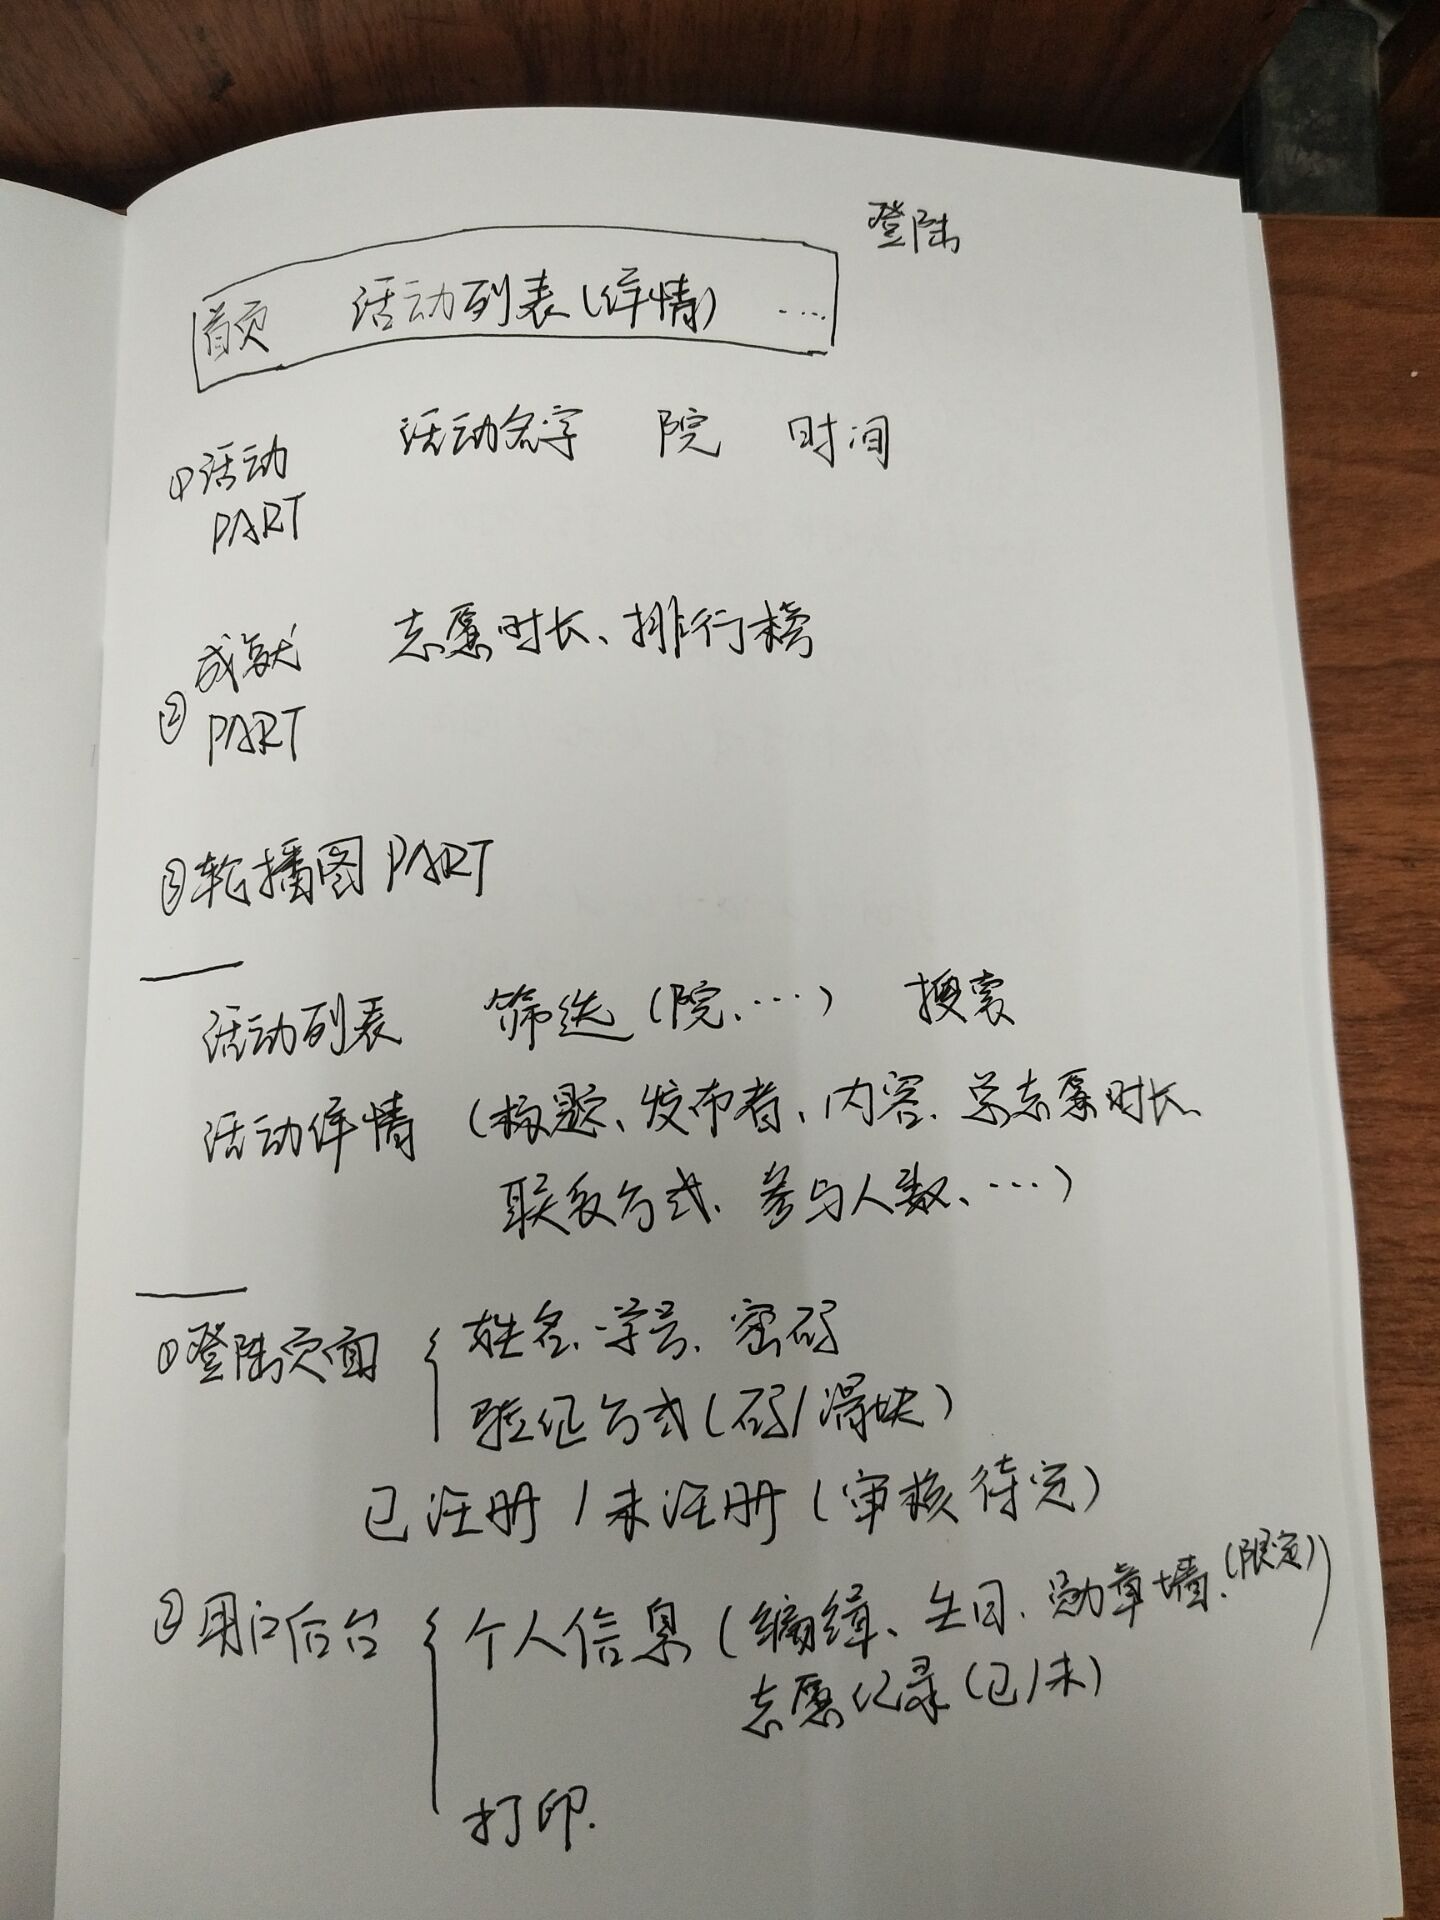 登陆
首页 活动列表(详情) ....
①活动 活动名字 院 时间
PART
成就 志愿时长、排行榜
② PART
③轮播图PART
活动列表 筛选(院、…) 搜索
活动详情 (标题、发布者、内容、总志愿时长、
联系方式、参与人数、…)
①登陆页面 { 姓名、学号、密码
验证方式(码/滑块)
已注册/未注册(审核待定)
②用户后台 { 个人信息(编辑、生日、勋章墙、(限定))
志愿记录(已/未)
打印.